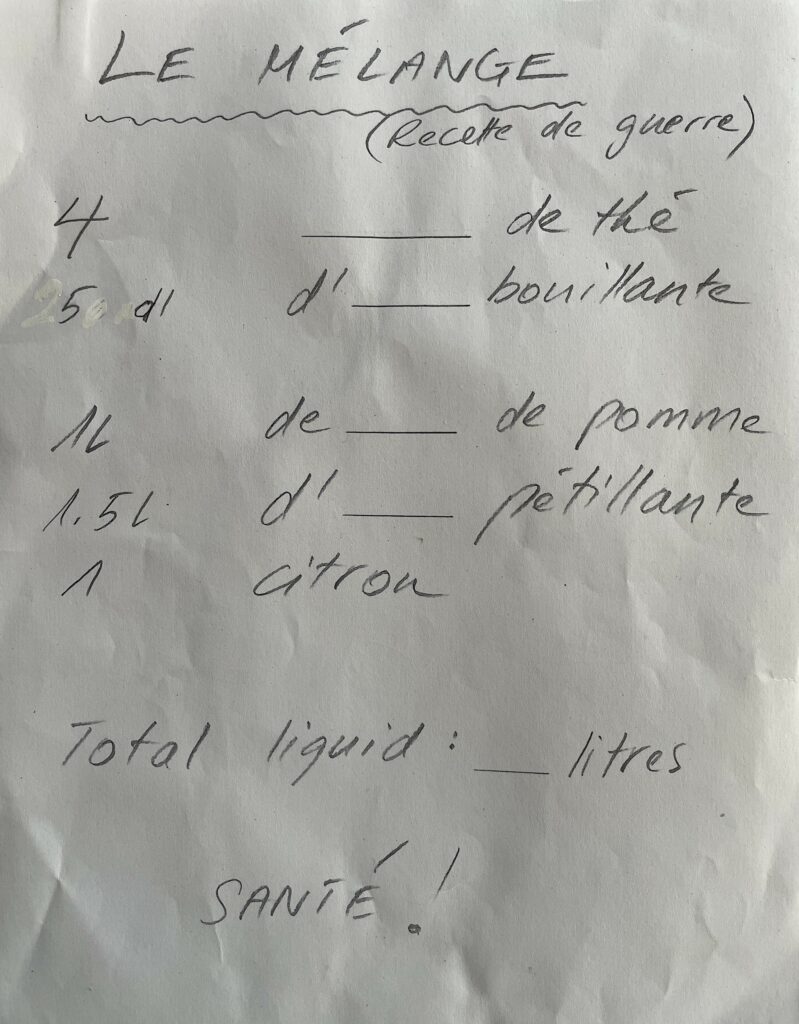 LE MÉLANGE
(Recette de guerre)
4 ______ de thé
5 dl d' ____ bouillante
1L de ____ de pomme
1.5l d' ____ pétillante
1 citron
Total liquid : ___ litres
SANTÉ !